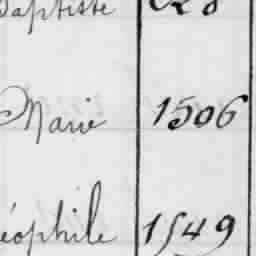 Baptiste
Marie 1506
éophile 1549